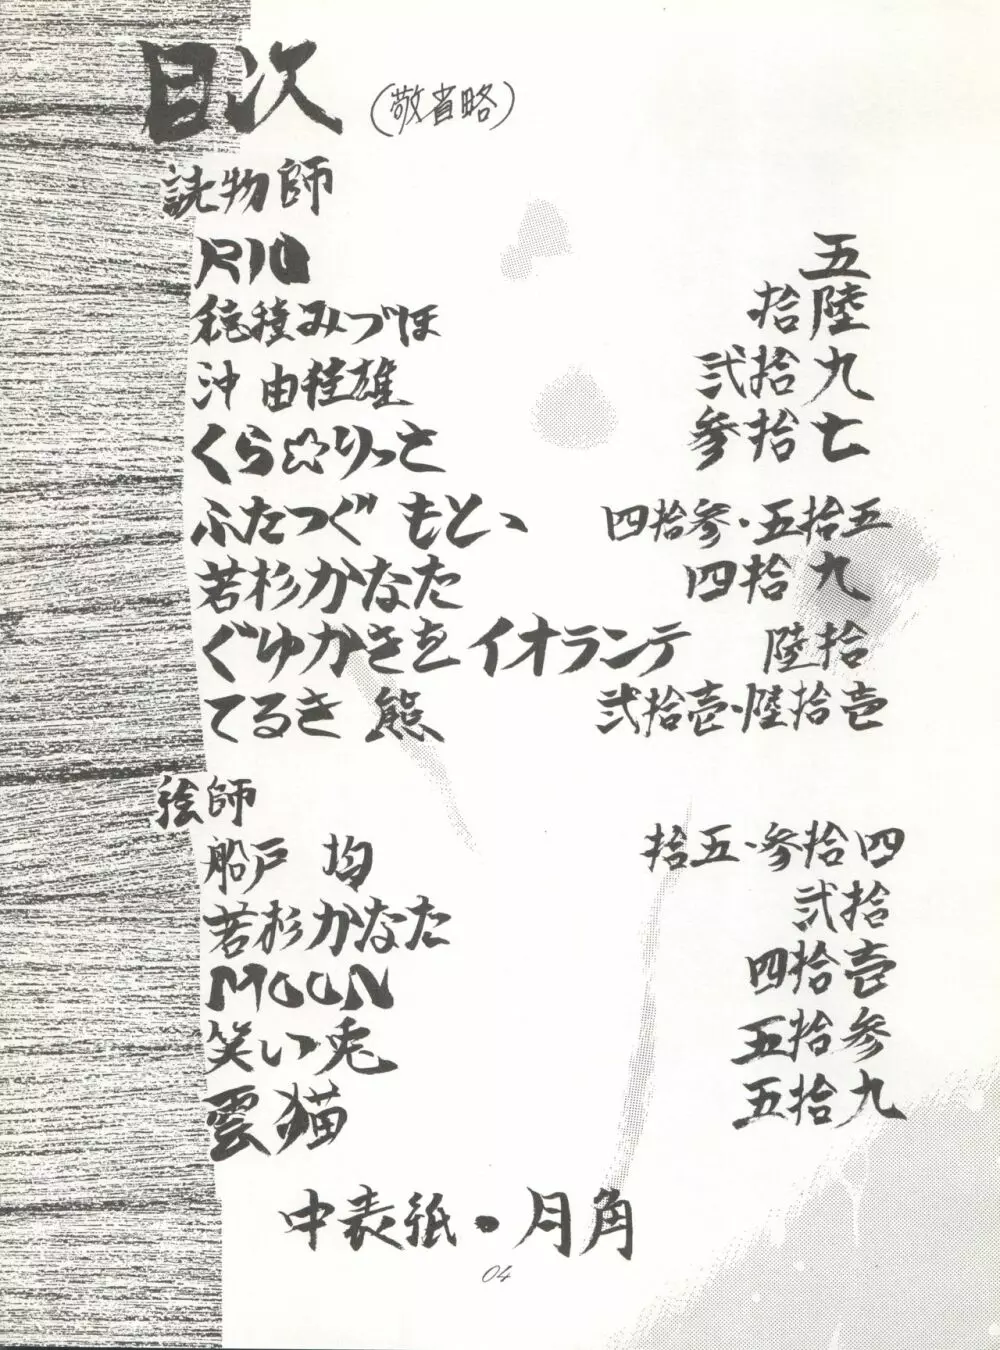 目次 (敬省略)
読物師
RIO 五
穂積みづほ 拾陸
沖 由桂雄 弐拾九
くら☆りっさ 参拾七
ふたつぐ もと、 四拾参・五拾五
若杉かなた 四拾九
ぐゆかきを イオランテ 陸拾
てるき 熊 弐拾壱・陸拾壱
絵師
船戸 均 拾五・参拾四
若杉かなた 弐拾
MOON 四拾壱
笑い兎 五拾参
雲猫 五拾九
中表紙・月角
04